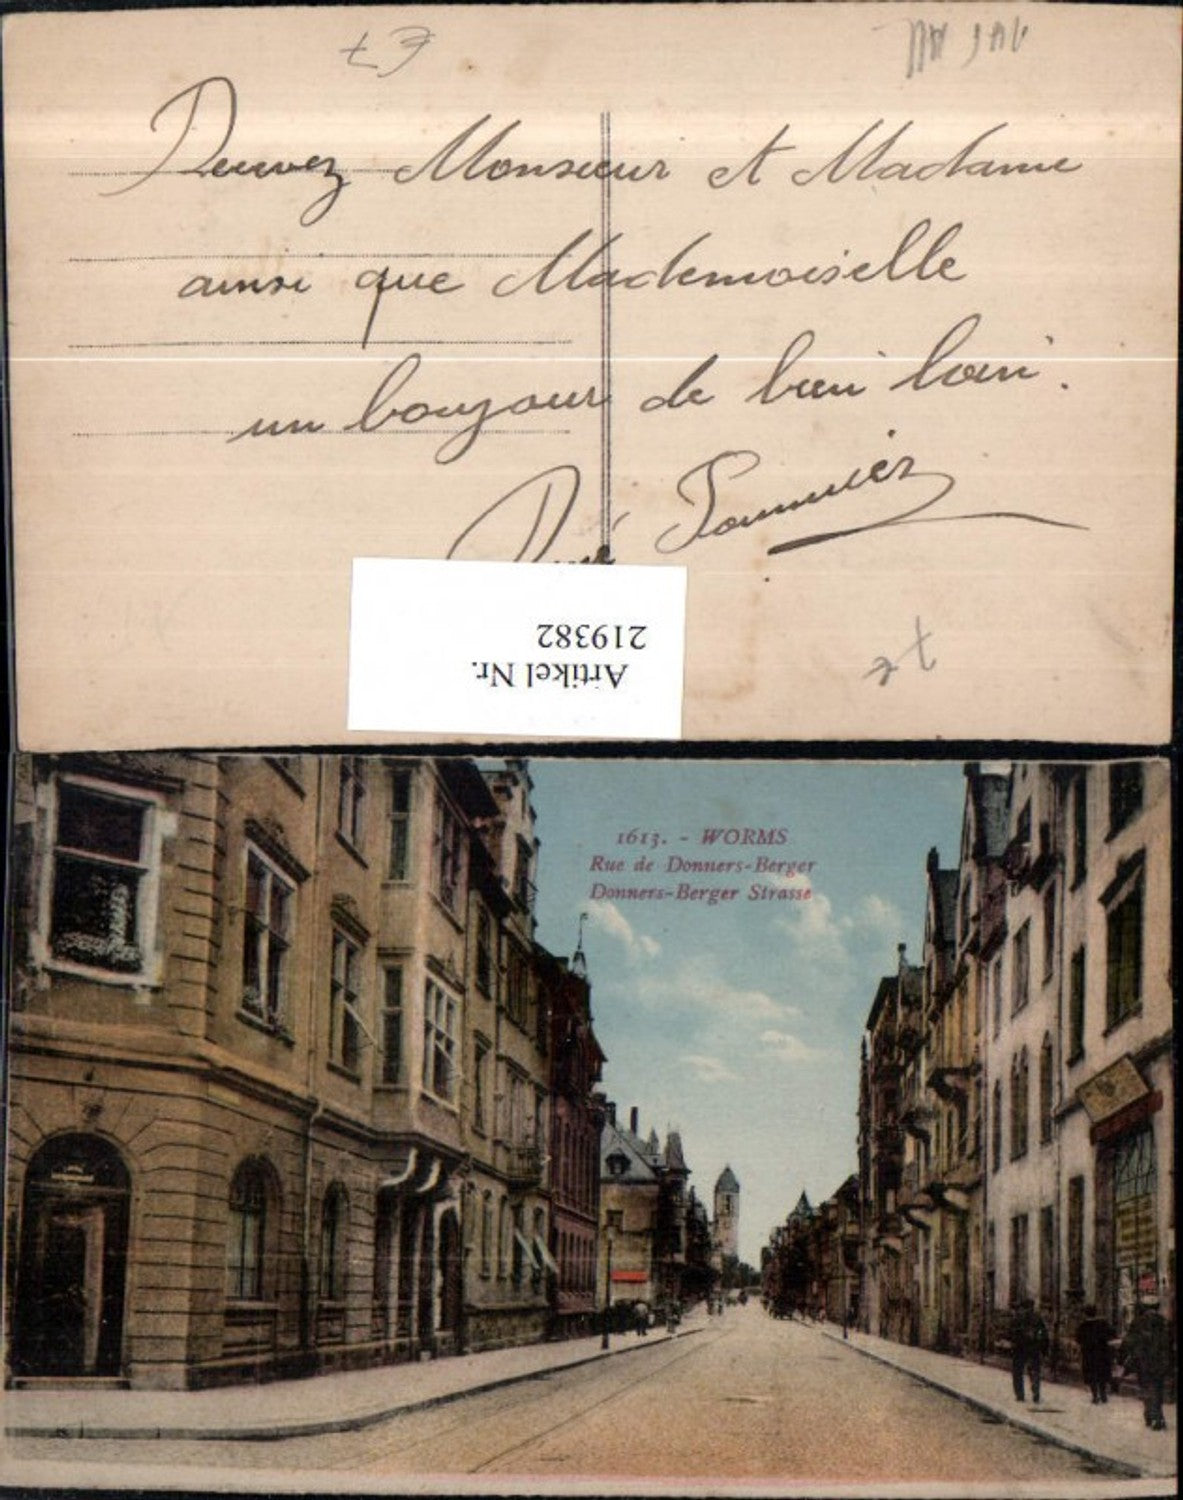 Recevez Monsieur et Madame
ainsi que Mademoiselle
un bonjour de bien loin.
René
Artikel Nr.
219382
1613. - WORMS
Rue de Donners-Berger
Donners-Berger Strasse